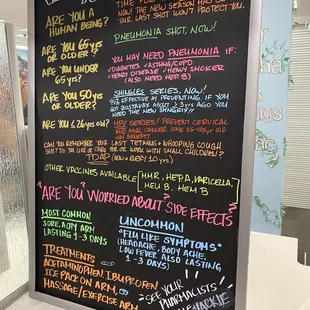 ARE YOU A HUMAN BEING?
NOW THE NEW SEASON HAS
YOUR LAST SHOT WON'T PROTECT YOU.
ARE YOU 65yrs OR OLDER?
PNEUMONIA SHOT, NOW!
ARE YOU UNDER 65yrs?
YOU MAY NEED PNEUMONIA IF:
*DIABETES *ASTHMA/COPD
*HEART DISEASE *HEAVY SMOKER
(ALSO NEED HEP B)
ARE YOU 50yrs OR OLDER?
SHINGLES SERIES, NOW!
EFFECTIVE AT PREVENTING IF YOU
GOT ZOSTAVAX ABOUT 3yrs AGO YOU
NEED THE NEW SHINGRIX!!
ARE YOU ≤26yrs old?
HPV SERIES/PREVENT CERVICAL
AND ANAL CANCER
CAN YOU REMEMBER YOUR LAST TETANUS + WHOOPING COUGH
SHOT? DO YOU LIVE OR CARE FOR OR WORK WITH SMALL CHILDREN?
TDAP (NOW & EVERY 10 yrs)
OTHER VACCINES AVAILABLE [MMR, HEP A, VARICELLA,
HEP B
"ARE YOU" WORRIED ABOUT "SIDE EFFECTS"
MOST COMMON
SORE, ACHY ARM
LASTING 1-3 DAYS
UNCOMMON
"FLU LIKE SYMPTOMS"
(HEADACHE, BODY ACHE,
LOW FEVER ALSO LASTING
1-3 DAYS)
TREATMENTS
ACETAMINOPHEN, IBUPROFEN
ICE PACK ON ARM, OR
MASSAGE/EXERCISE ARM
"SEE YOUR
PHARMACISTS
JACKIE